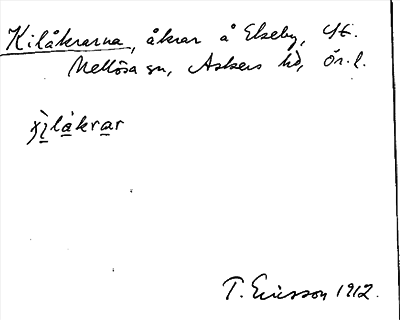 Kilåkrarna, åkrar å Elseby, St.
Mellösa sn, Askers hd, Ör. l.
x̀ìlåkrar
T. Ericsson 1912.